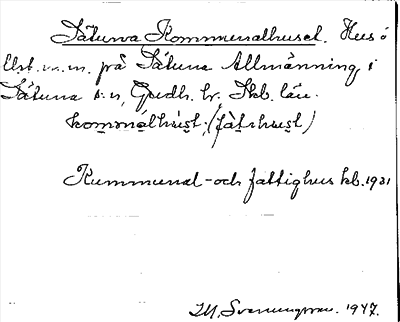 Såtuna Kommunalhuset. Hus o
Utst. m.m. på Såtuna Allmänning, i
Såtuna s:n, Gudh. hr. Skb. län.
kommnálhùset, (fàtshuset)
Kummunal- och fattighus kb. 1931
I.M. Svenungsson. 1947.